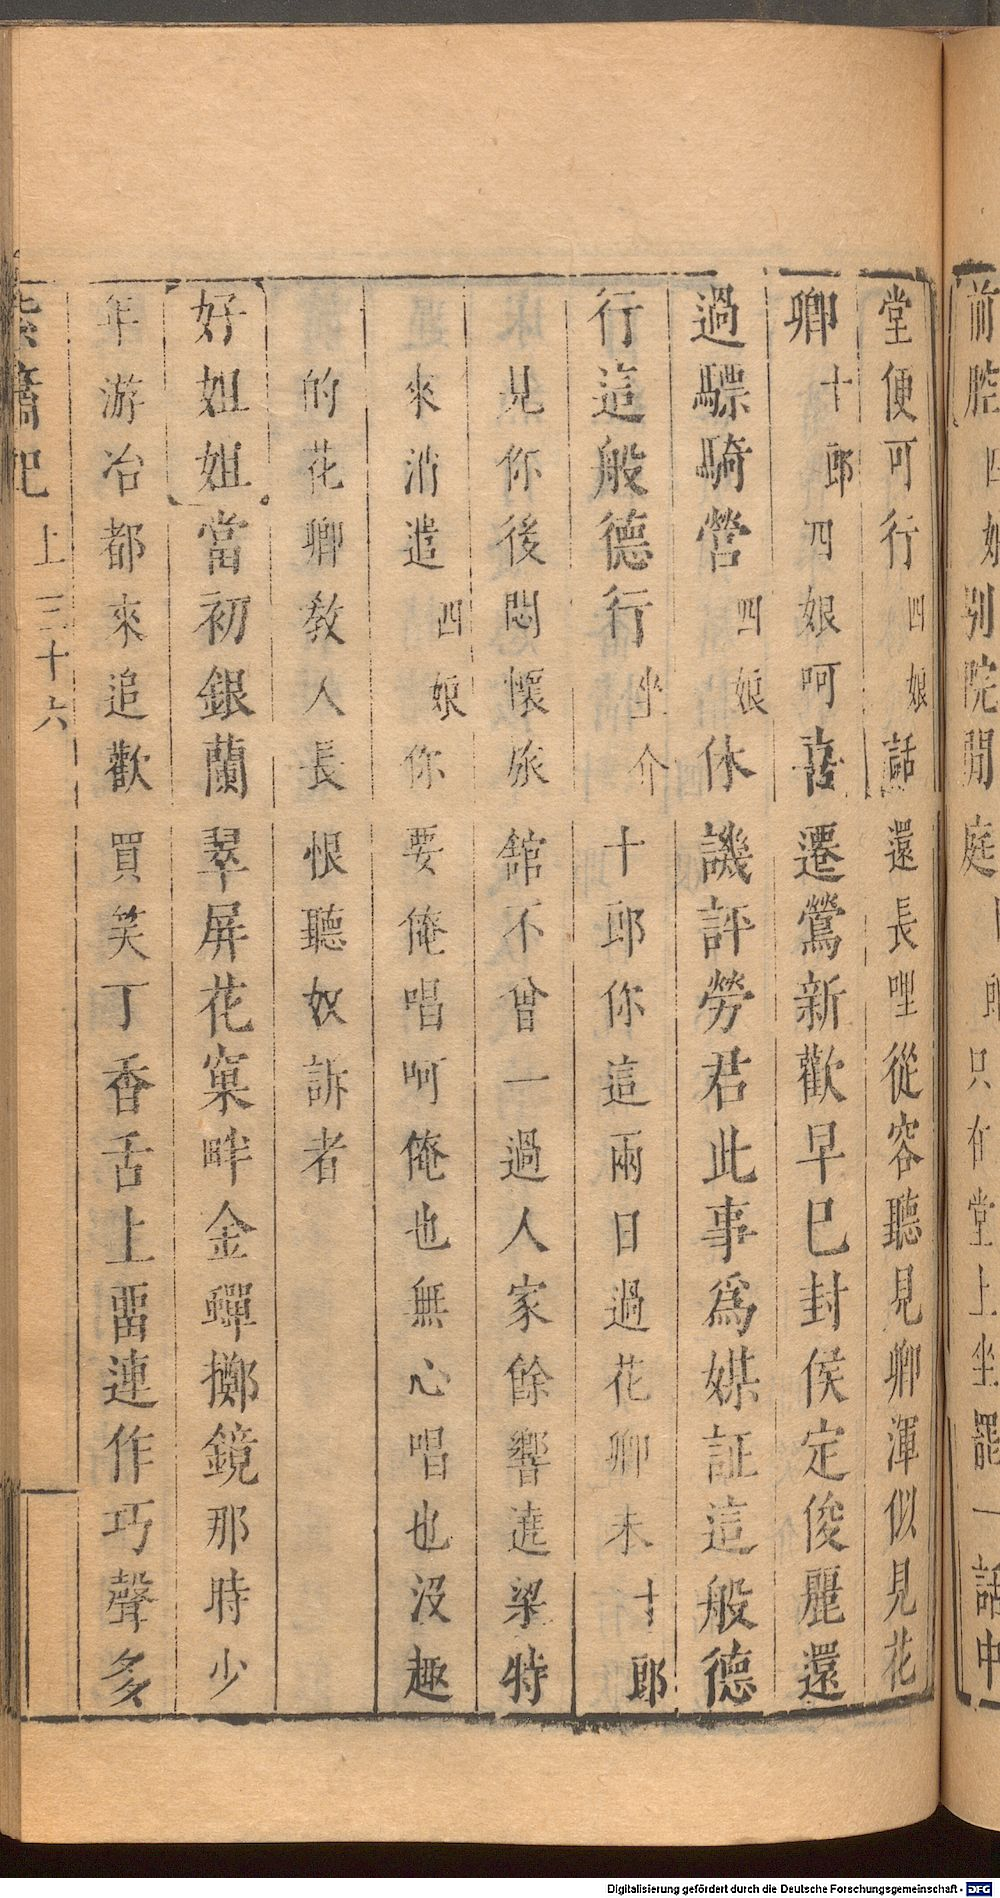 前腔四娘別院閒庭十郎只在堂上坐罷一話中
堂便可行四娘話還長哩從容聽見卿渾似見花
卿十郎四娘呵喜遷鶯新歡早巳封侯定俊麗還
過驃騎營四娘休譏評勞君此事爲媒証這般德
行這般德行坐介十郎你這兩日過花卿未十郎
見你後悶懷旅館不曾一過人家餘響遶梁特
來消遣四娘你要俺唱呵俺也無心唱也沒趣
的花卿教人長恨聽奴訴者
好姐姐當初銀蘭翠屏花窠畔金蟬擲鏡那時少
年游冶都來追歡買笑丁香舌上畱連作巧聲多
紫簫記 上 三十六
Digitalisierung gefördert durch die Deutsche Forschungsgemeinschaft - DFG